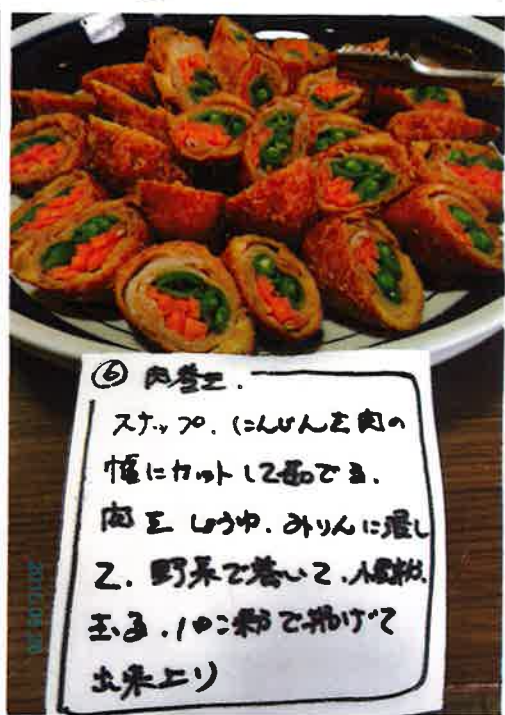 ⑥ 肉巻き.
スナップ. にんじんを肉の
幅にカットして茹でる.
肉を しょうゆ. みりんに浸し
て. 野菜で巻いて. 小麦粉.
玉子. パン粉で揚げて
出来上り